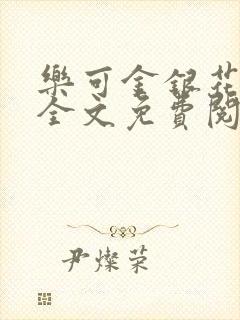 樂可金銀花
全文免費閱
尹燦荣